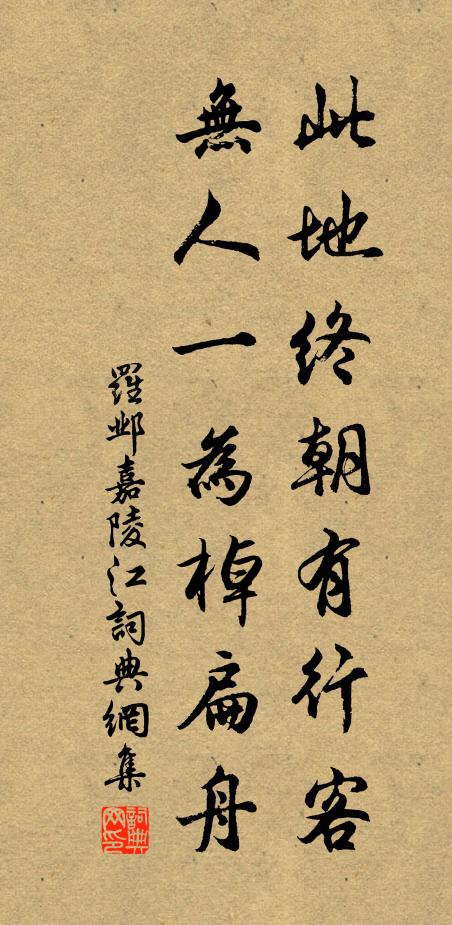 此地終朝有行客
無人一為棹扁舟
羅鄴嘉陵江詞典網集
詞典網印